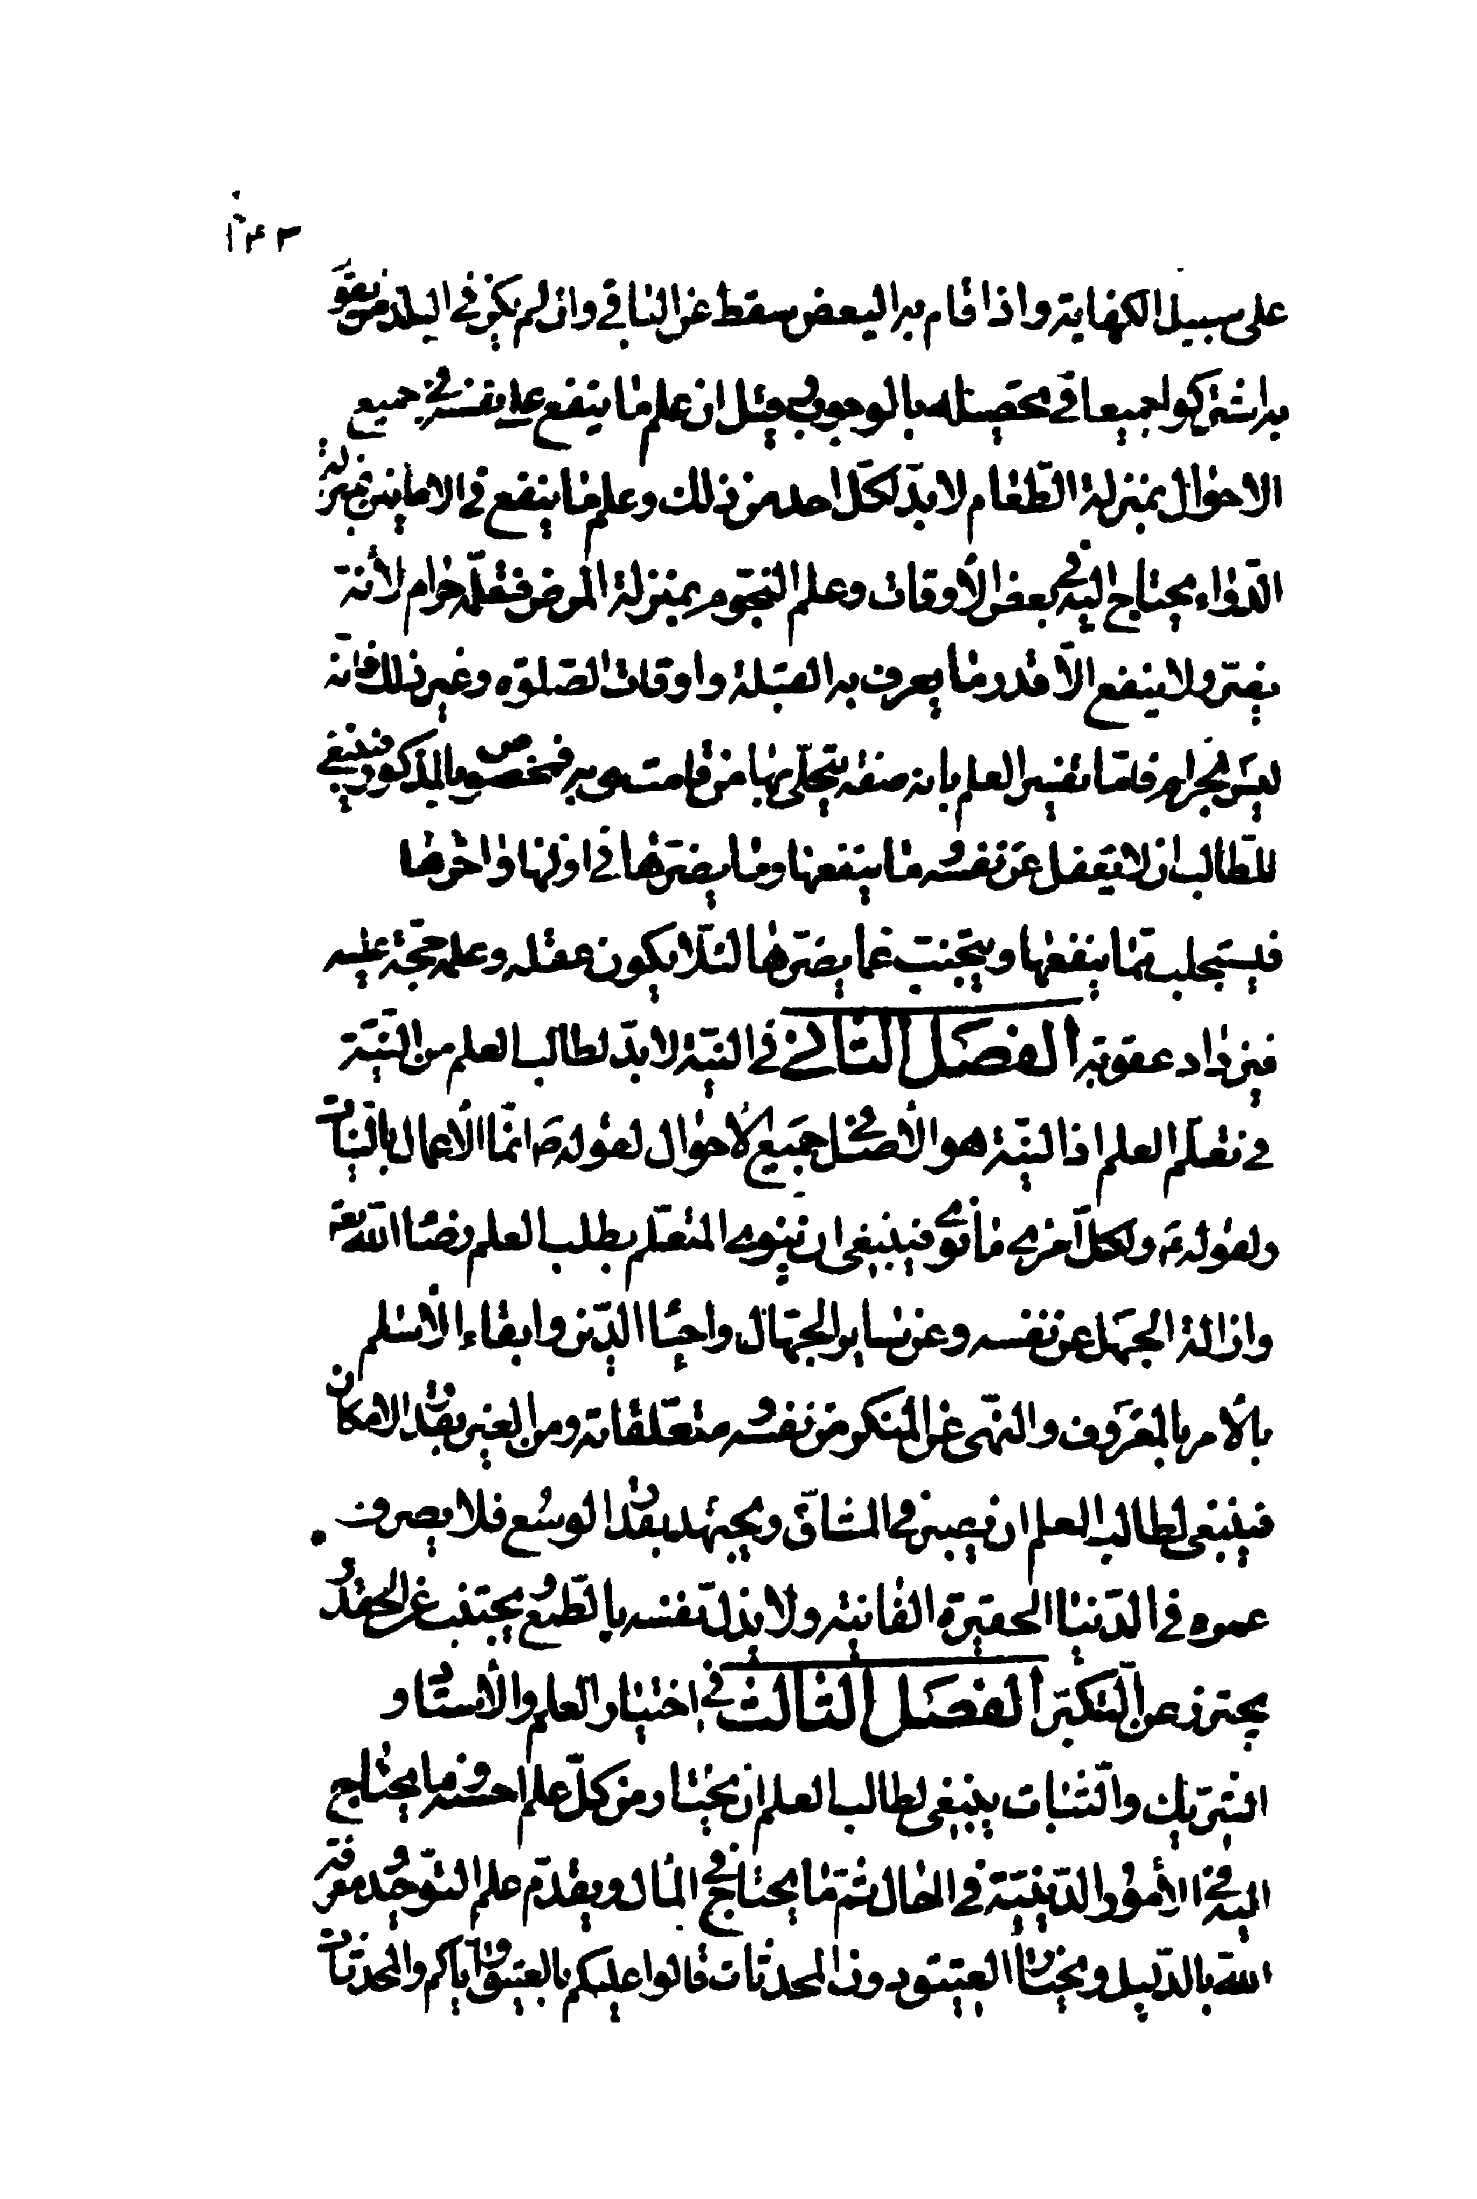 ١٢٤٣
على سبيل الكفاية واذا قام به البعض سقط عن الباقى وان لم يكن فى البلد من يقو
به اشتركوا جميعا فى تحصيله بالوجوب وقيل ان علم ما ينفع على نفسه فى جميع
الاحوال بمنزلة الطعام لا بدّ لكلّ احد من ذلك وعلم ما ينفع فى الاحايين بمنزلة
الدّواء يحتاج اليه فى بعض الأوقات وعلم النجوم بمنزلة المرض فتعلّمه حرام لأنّه
يضرّ ولا ينفع الّا قدر ما يعرف به القبلة واوقات الصّلوة وغير ذلك فانّه
ليس بحرام فامّا تفسير العلم بانه صفة يتجلّى بها من قامت هى به فمخصوص بالمذكور فينبغى
للطّالب ان لا يغفل عن نفسه ما ينفعها وما يضرّها فى اولها واخرها
فيستجلب بما ينفعها ويجتنب عمّا يضرّها لئلّا يكون عقله وعلمه حجّة عليه
فيزداد عقوبته الفصل الثانى فى النيّة لا بدّ لطالب العلم من النيّة
فى تعلّم العلم اذ النيّة هو الأصل فى جميع الأحوال لقوله ص انّما الأعمال بالنّيات
ولقوله ص ولكلّ امرىء ما نوى فينبغى ان ينوى المتعلّم بطلب العلم رضا اللّه تعه
وازالة الجهل عن نفسه وعن ساير الجهّال واحياا الدّين وابقاء الأسلم
بالأمر بالمعروف والنهى عن المنكر من نفسه ومتعلّقاته ومن الغير بقدر الامكان
فينبغى لطالب العلم ان يصبر فى المشاقّ ويجتهد بقدر الوسع فلا يصرف
عمره فى الدّنيا الحقيرة الفانية ولا يذلّ نفسه بالطّمع ويجتنب عن الحقد و
يحترز عن التّكبّر الفصل الثالث فى اختيار العلم والأستاد و
الشّريك والثّبات ينبغى لطالب العلم ان يختار من كلّ علم احسنه وما يحتاج
اليه فى الأمور الدّينيّة فى الحال ثمّ ما يحتاج فى المال ويقدّم علم التّوحيد ومعرفة
اللّه بالدّليل ويختار العتيق دون المحدثات قالوا عليكم بالعتيق واياكم والمحدثات